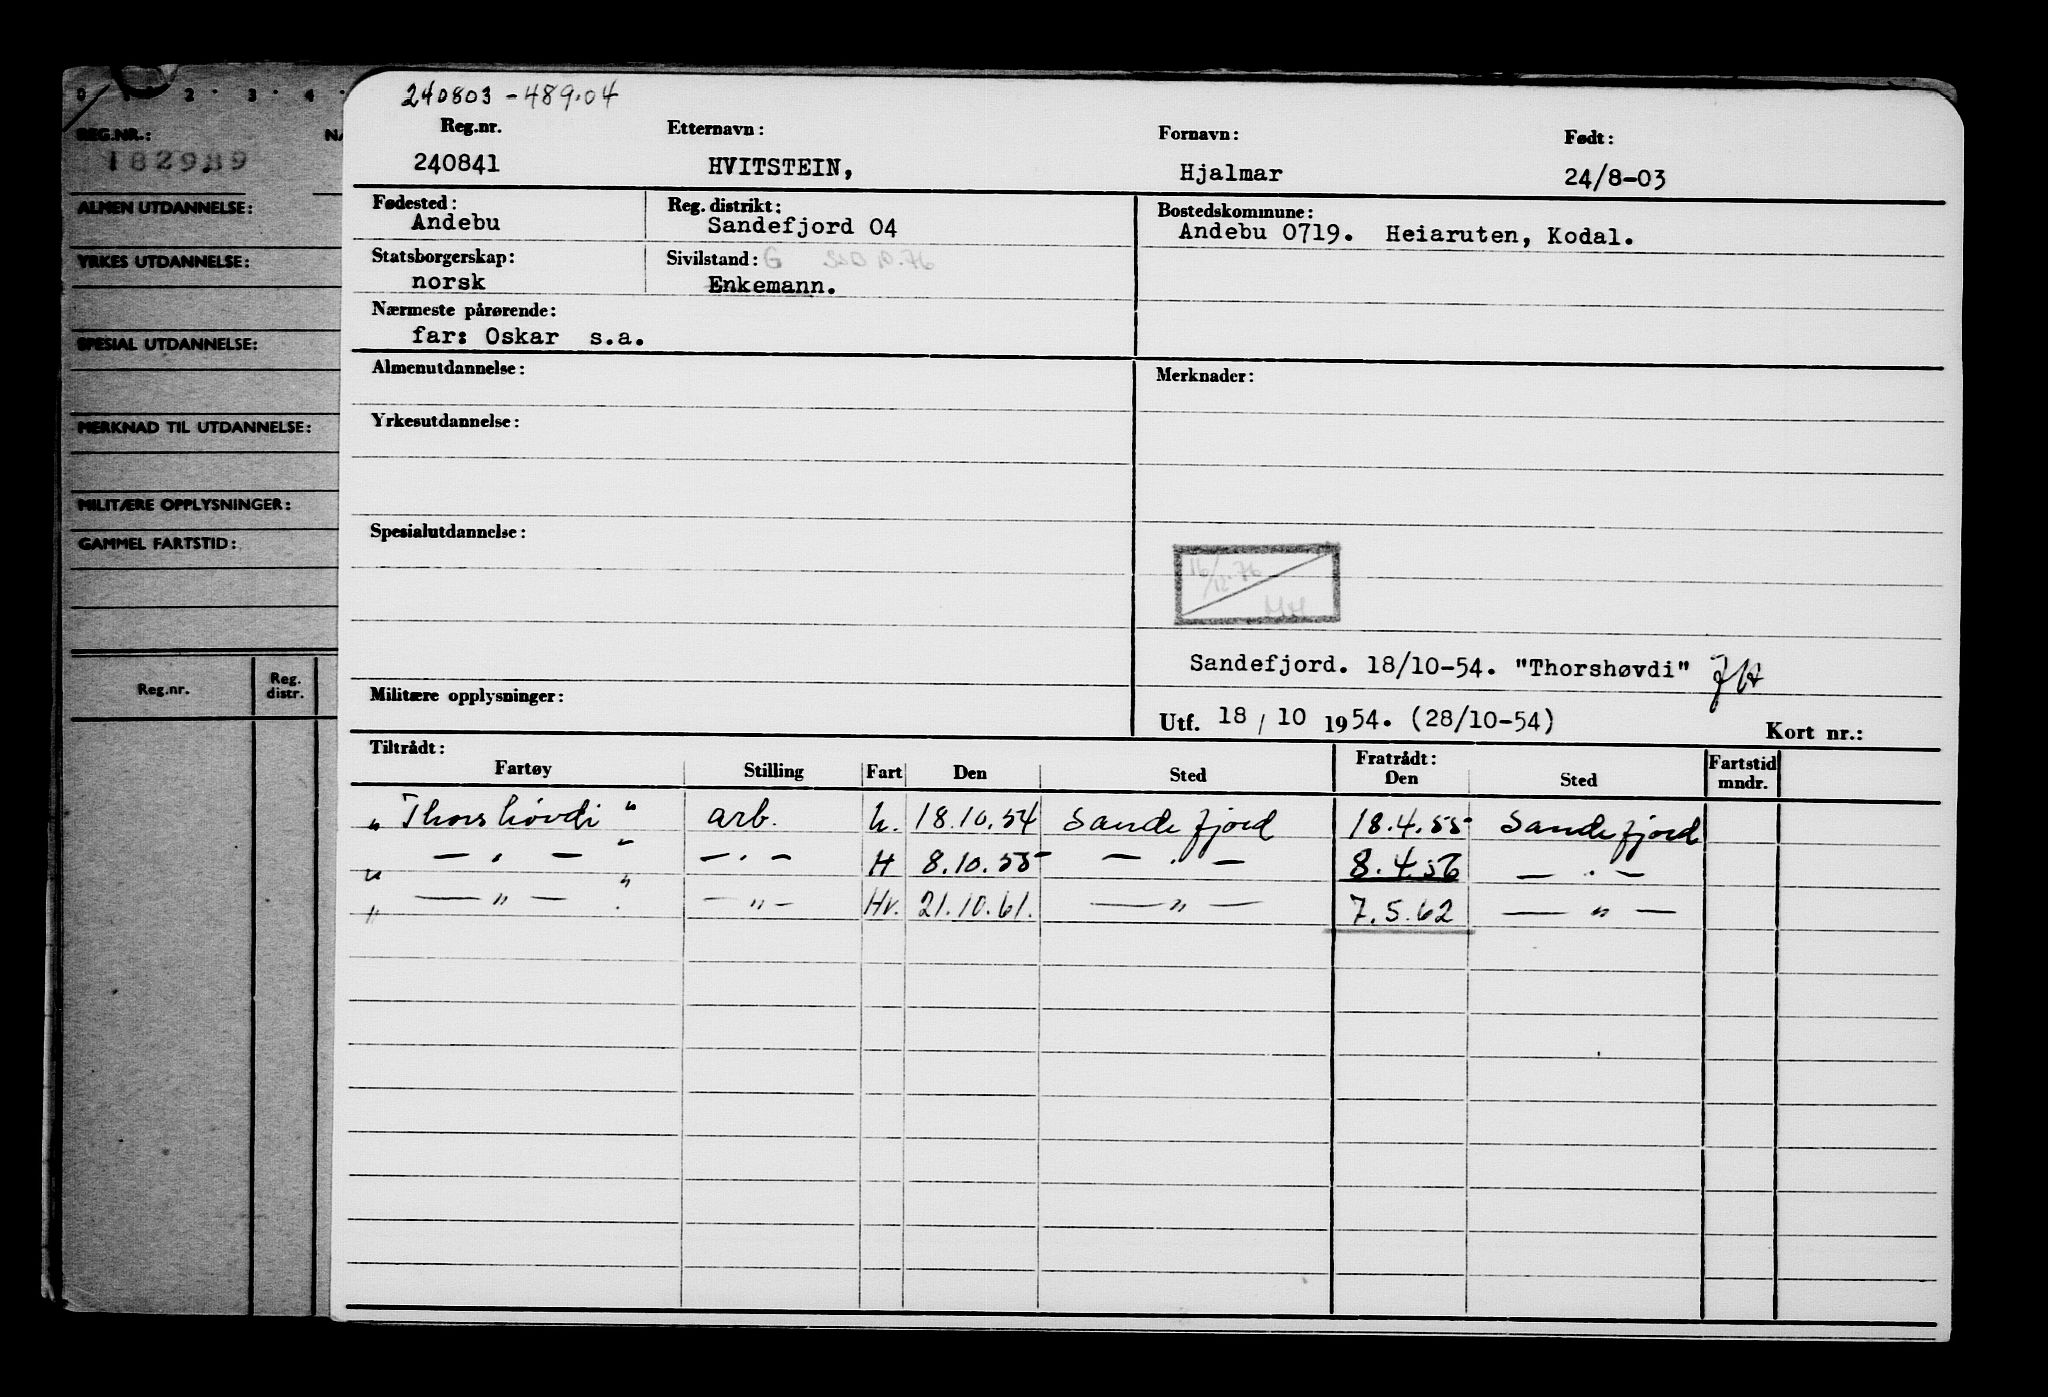 0 1 2 · 3 · 4 ·
REG.NR.: NA
182989
ALMEN UTDANNELSE:
YRKES UTDANNELSE:
SPESIAL UTDANNELSE:
MERKNAD TIL UTDANNELSE:
MILITÆRE OPPLYSNINGER:
GAMMEL FARTSTID:
Reg.nr. Reg. distr.
240803 - 489.04
Reg.nr. Etternavn: Fornavn: Født:
240841 HVITSTEIN, Hjalmar 24/8-03
Fødested: Reg. distrikt: Bostedskommune:
Andebu Sandefjord 04 Andebu 0719. Heiaruten, Kodal.
Statsborgerskap: Sivilstand: G
norsk Enkemann.
Nærmeste pårørende:
far: Oskar s.a.
Almenutdannelse: Merknader:
Yrkesutdannelse:
Spesialutdannelse:
16/12-76
Sandefjord. 18/10-54. "Thorshøvdi"
Militære opplysninger:
Utf. 18 / 10 1954. (28/10-54) Kort nr.:
Tiltrådt: Fratrådt: Fartstid
Fartøy Stilling Fart Den Sted Den Sted mndr.
" Thorshövdi " arb. h. 18.10.54 Sandefjord 18.4.55 Sandefjord
" — " — " — " — H 8.10.55 — " — 8.4.56 — " —
" — " — " — " — Hv. 21.10.61. — " — 7.5.62 — " —